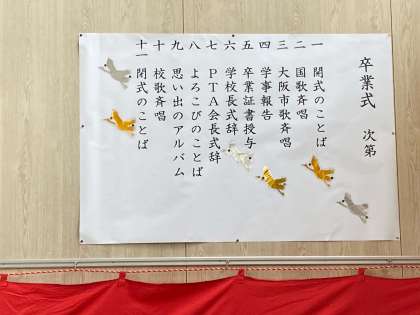 卒業式 次第
一 開式のことば
二 国歌斉唱
三 大阪市歌斉唱
四 学事報告
五 卒業証書授与
六 学校長式辞
七 PTA会長式辞
八 よろこびのことば
九 思い出のアルバム
十 校歌斉唱
十一 閉式のことば